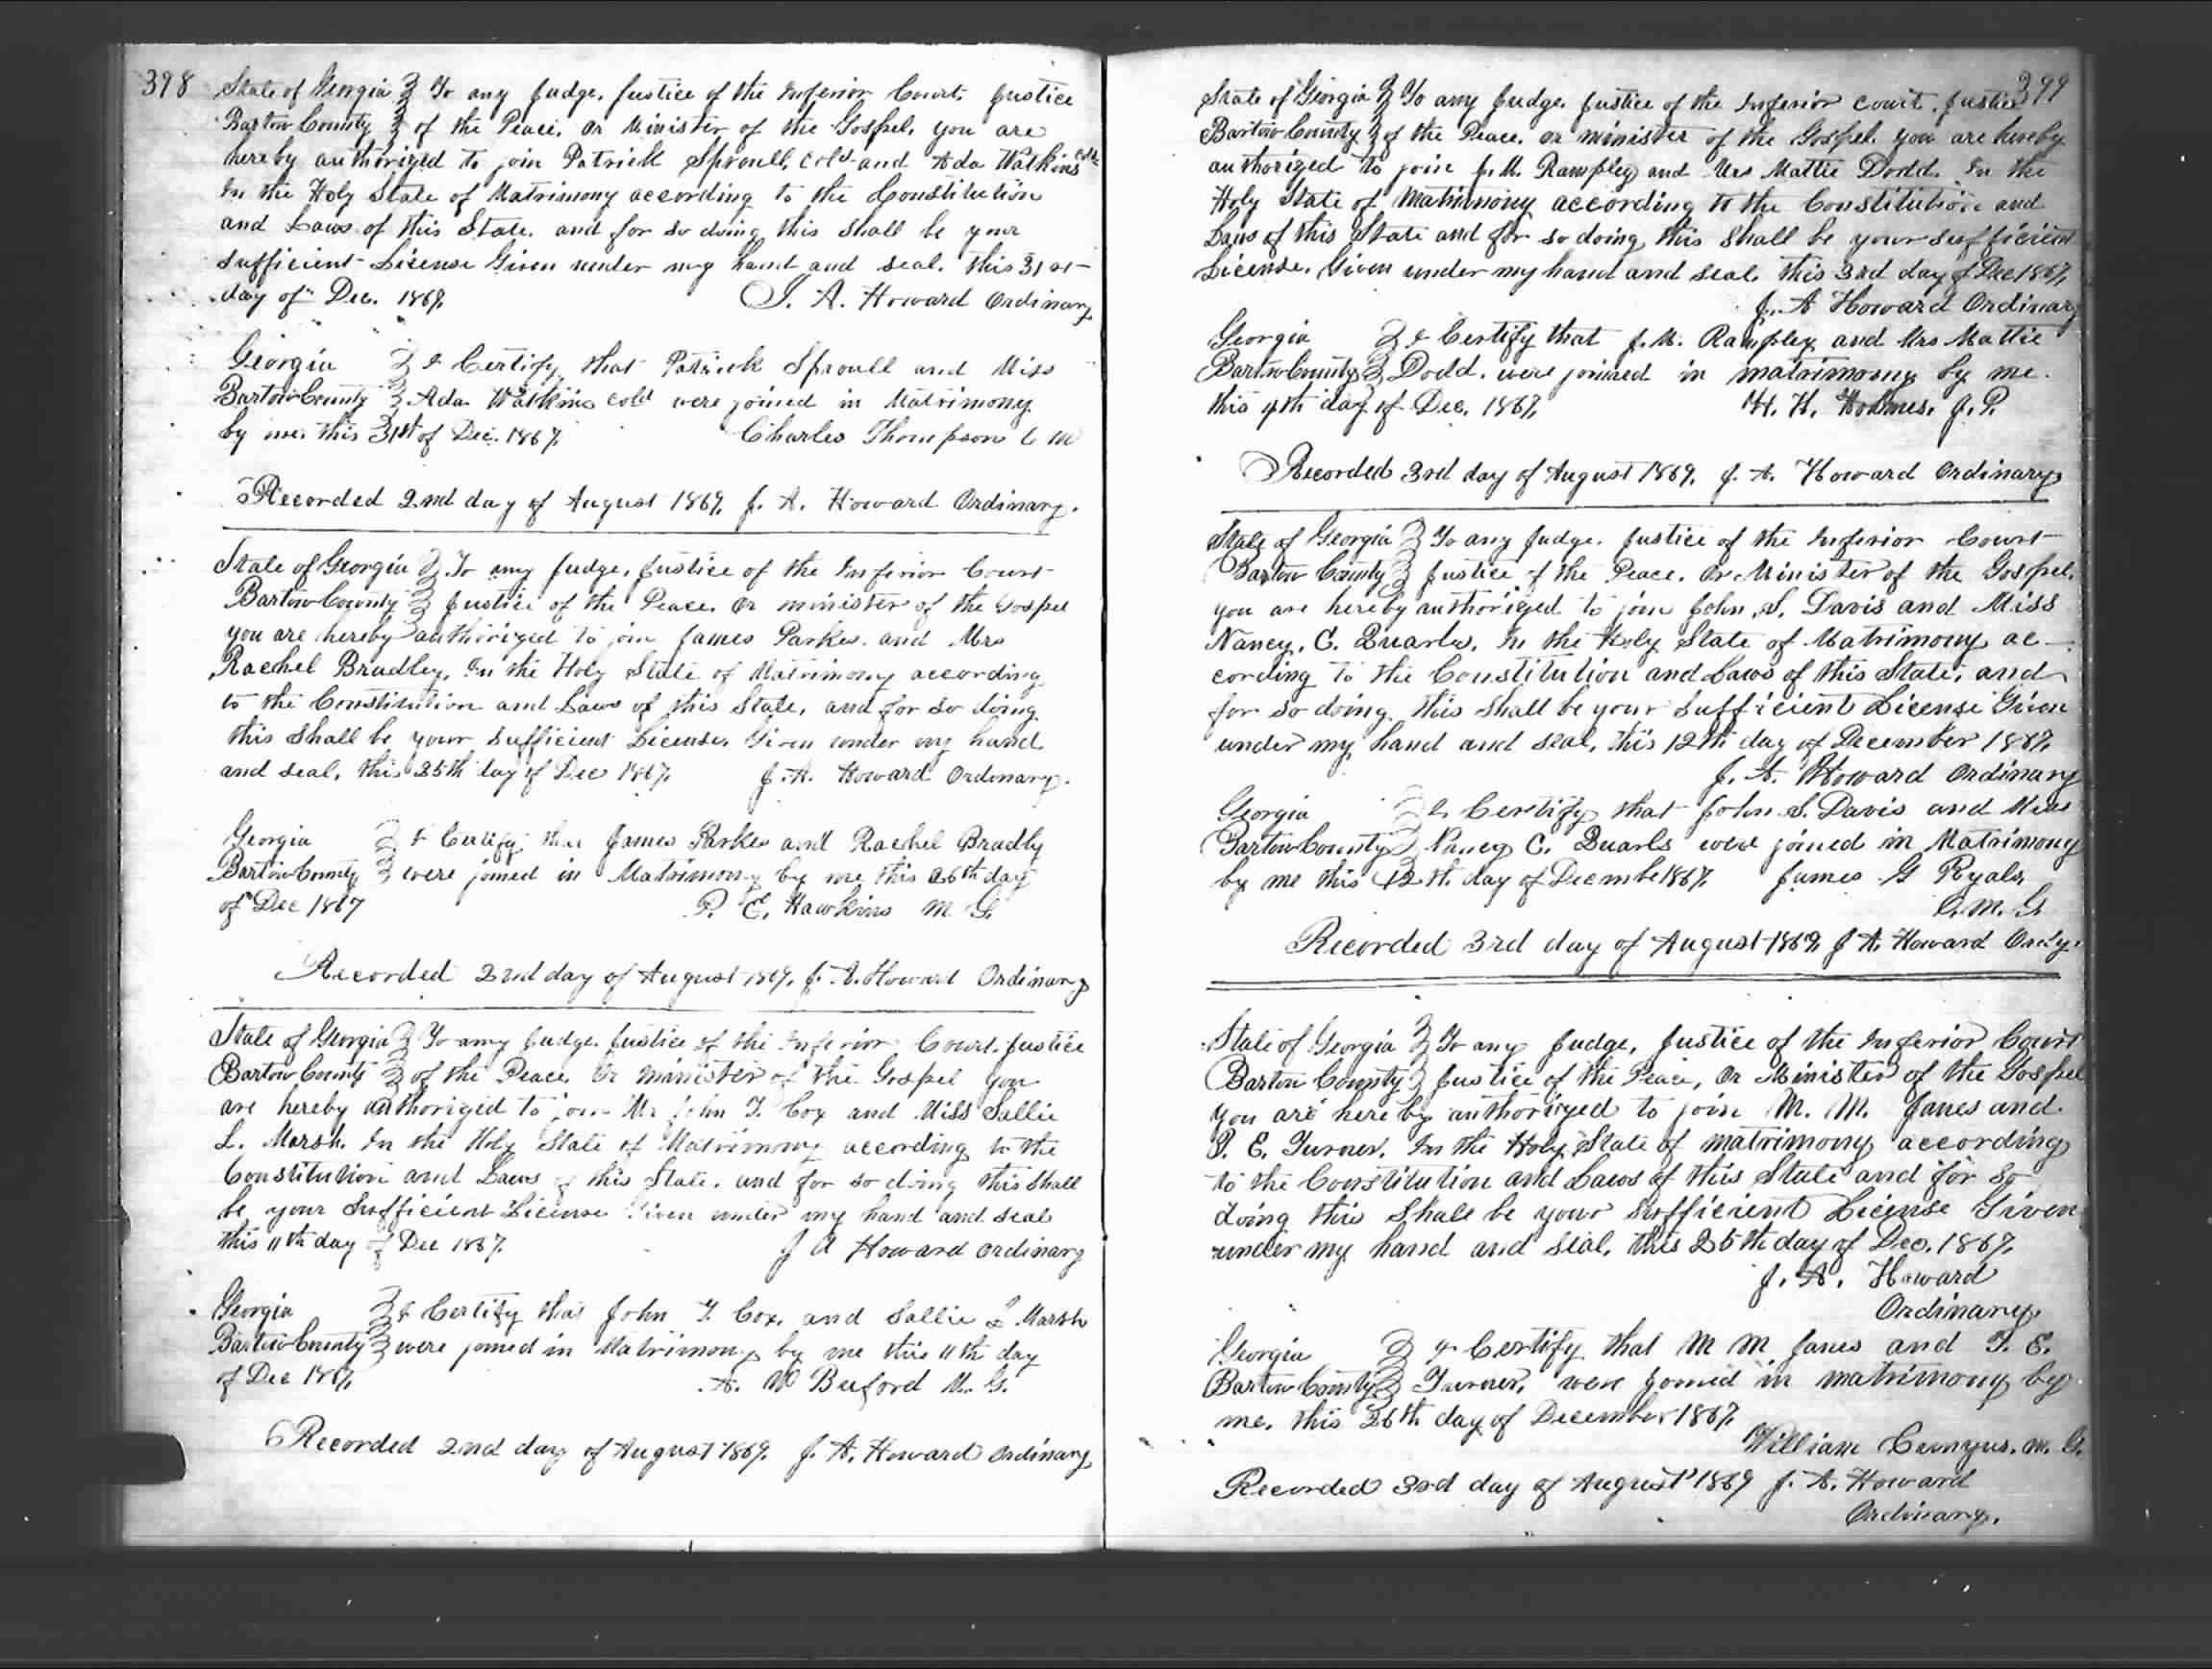 398
State of Georgia } To any Judge, Justice of the Inferior Court, Justice
Bartow County } of the Peace, Or Minister of the Gospel, you are
hereby authorized to join Patrick Sproull, cold and Ada Watkins cold
In the Holy State of Matrimony according to the Constitution
and Laws of this State, and for so doing this shall be your
sufficient License Given under my hand and seal. This 31st
day of Dec. 1867, J. A. Howard Ordinary
Georgia } I Certify that Patrick Sproull and Miss
Bartow County } Ada Watkins cold were joined in Matrimony
by me, this 31st of Dec. 1867, Charles Thompson
Recorded 2nd day of August 1869, J. A. Howard Ordinary.
State of Georgia } To any Judge, Justice of the Inferior Court
Bartow County } Justice of the Peace, Or minister of the Gospel
you are hereby authorized to join James Parkes and Mrs
Rachel Bradley, In the Holy State of Matrimony according
to the Constitution and Laws of this State, and for so doing
this shall be your sufficient License. Given under my hand
and seal, this 25th day of Dec 1867, J. A. Howard Ordinary.
Georgia } I Certify that James Parkes and Rachel Bradly
Bartow County } were joined in Matrimony by me this 26th day
of Dec 1867 P. E. Hawkins M G.
Recorded 2nd day of August 1869, J. A. Howard Ordinary
State of Georgia } To any Judge, Justice of the Inferior Court, Justice
Bartow County } of the Peace, Or minister of the Gospel you
are hereby authorized to join Mr John T. Cox and Miss Sallie
L. Marsh. In the Holy State of Matrimony according to the
Constitution and Laws of this State, and for so doing this shall
be your sufficient License Given under my hand and seal
this 11th day of Dec 1867, J A Howard Ordinary
Georgia } I Certify that John T. Cox, and Sallie L Marsh
Bartow County } were joined in Matrimony by me this 11th day
of Dec 1867, A. W Buford M. G.
Recorded 2nd day of August 1869. J. A. Howard Ordinary
399
State of Georgia } To any Judge, Justice of the Inferior court, Justice
Bartow County } of the Peace, or minister of the Gospel, you are hereby
authorized to join J. M. Rampley and Mrs Mattie Dodd. In the
Holy State of Matrimony according to the Constitution and
Laws of this State and for so doing, this shall be your sufficient
License. Given under my hand and seal. this 3rd day of Dec 1867,
J. A Howard Ordinary
Georgia } I Certify that J. M. Rampley and Mrs Mattie
Bartow County } Dodd, were joined in matrimony by me.
this 4th day of Dec, 1867, H. H. Holmes, J. P.
Recorded 3rd day of August 1869, J. A. Howard Ordinary
State of Georgia } To any Judge, Justice of the Inferior Court
Bartow County } Justice of the Peace, Or Minister of the Gospel,
you are hereby authorized to join John, S. Davis and Miss
Nancy, C. Quarls, In the Holy State of Matrimony ac-
cording to the Constitution and Laws of this State, and
for so doing this shall be your sufficient License Given
under my hand and seal, this 12th day of December 1867,
J. A. Howard Ordinary
Georgia } I Certify that John. S. Davis and Miss
Bartow County } Nancy C. Quarls were joined in Matrimony
by me this 12th. day of Decembe 1867, James G Ryals,
O. M. G.
Recorded 3rd day of August 1869 J A. Howard Ordy.
State of Georgia } To any Judge, Justice of the Inferior Court
Bartow County } Justice of the Peace, Or Minister of the Gospel
you are hereby authorized to join M. M. Janes and
T. E. Turner, In the Holy State of matrimony according
to the Constitution and Laws of this State and for so
doing this shall be your sufficient License Given
under my hand and seal, this 25th day of Dec. 1867,
J. A. Howard
Ordinary,
Georgia } I Certify that M M Janes and T. E.
Bartow County } Turner, were joined in matrimony by
me, this 26th day of December 1867,
William Cunyus, M. G.
Recorded 3rd day of August 1869 J. A. Howard
Ordinary.